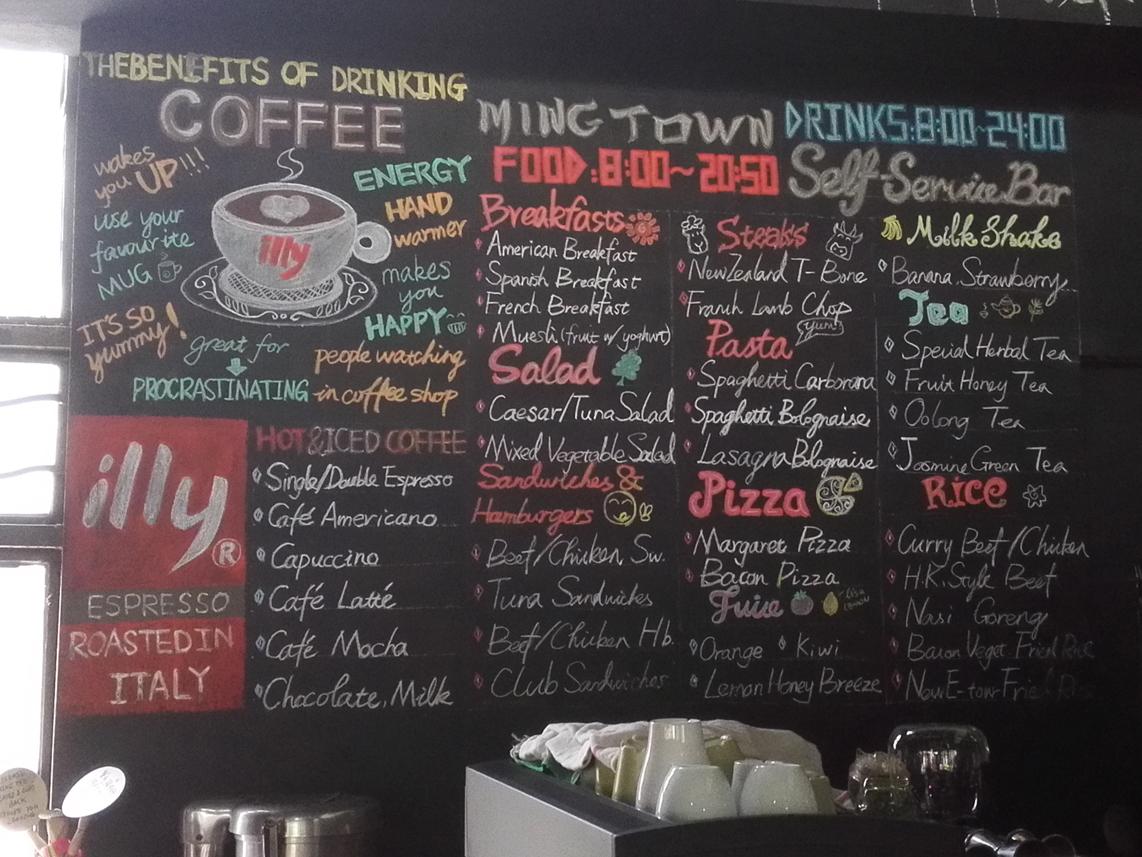 THE BENEFITS OF DRINKING
COFFEE
wakes
you UP!!!
use your
favourite
MUG
IT'S SO
yummy!
great for
PROCRASTINATING
ENERGY
HAND
warmer
makes
you
HAPPY
people watching
in coffee shop
illy
illy
®
ESPRESSO
ROASTED IN
ITALY
HOT & ICED COFFEE
Single/Double Espresso
Café Americano
Capuccino
Café Latté
Café Mocha
Chocolate, Milk
MING TOWN
FOOD:8:00~20:50
DRINKS:8:00~24:00
Self-Service Bar
Breakfasts
American Breakfast
Spanish Breakfast
French Breakfast
Muesli (fruit w/ yoghurt)
Salad
Caesar/Tuna Salad
Mixed Vegetable Salad
Sandwiches &
Hamburgers
Beef/Chicken Sw.
Tuna Sandwiches
Beef/Chicken Hb.
Club Sandwiches
Steaks
New Zealand T-Bone
Franch Lamb Chop
Pasta
yum!
Spaghetti Carborara
Spaghetti Bolognaise
Lasagna Bolognaise
Pizza
Margaret Pizza
Bacon Pizza
Juice
Orange Kiwi
Lemon Honey Breeze
Milk Shake
Banana, Strawberry
Tea
Special Herbal Tea
Fruit Honey Tea
Oolong Tea
Jasmine Green Tea
RICE
Curry Beef/Chicken
H.K. Style Beef
Nasi Goreng
Bacon Veget. Fried Rice
Fried Rice